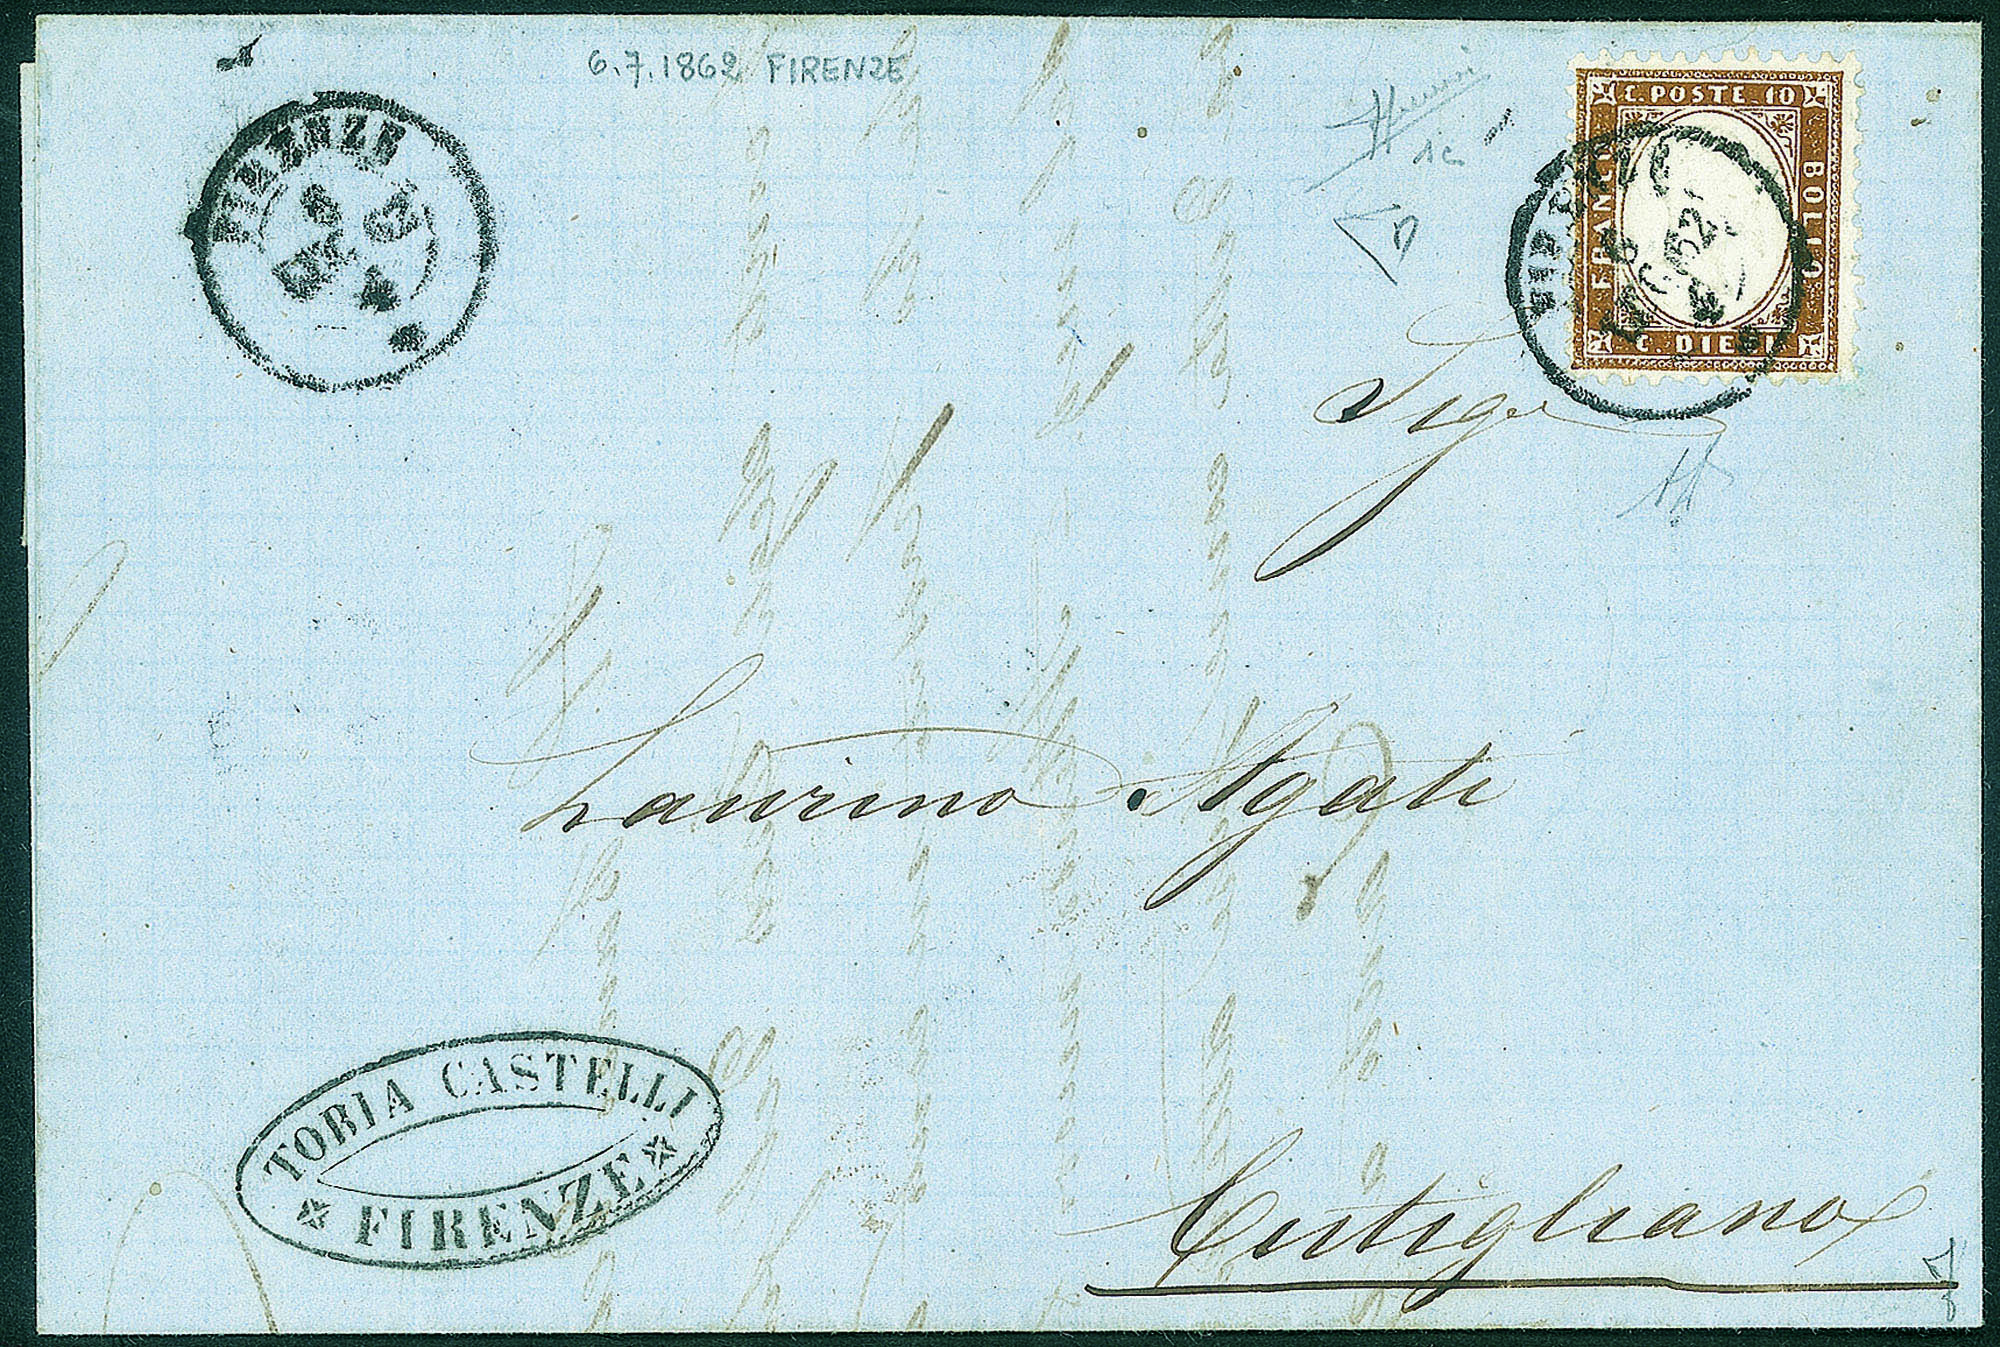 6.7.1862 FIRENZE
FIRENZE
C. POSTE 10
FRANCO
BOLLO
C. DIECI
FIRENZE
62
Sig.r
Laurino Agati
TOBIA CASTELLI
FIRENZE
Cutigliano